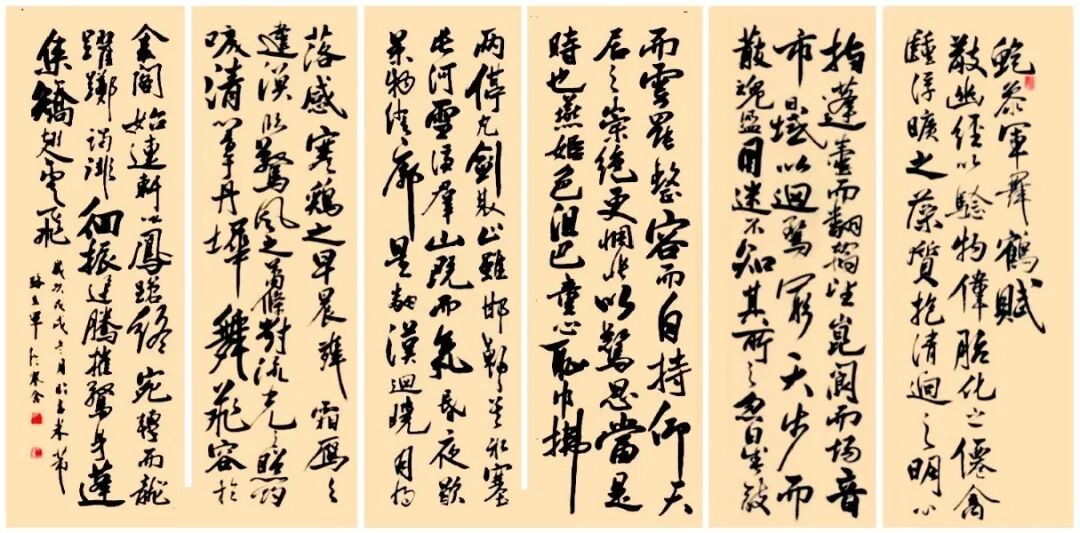 鮑參軍舞鶴賦
散幽經以驗物偉胎化之僊禽
鍾浮曠之藻質抱清迥之明心
指蓬壺而翻翰望崑閬而揚音
帀日域以迴騖窮天步而
散魂盪目迷不知其所之忽
而雲罷整容而自持仰天
居之崇絕更惆悵以驚思當是
時也燕姬色沮巴童心恥巾拂
兩停丸劍止雖邯鄲冰塞
長河雪滿群山既而氛昏夜歇
景物澄廓星翻漢迴曉月將
落感寒雞之早晨憐霜雁之
違漠臨驚風之蕭條對流光之照灼
唳清響丹墀舞飛容於
金閣始連軒以鳳蹌終宛轉而龍
躍躑躅徘徊振迅騰摧驚身蓬
集矯翅雪飛
歲次戊戌月